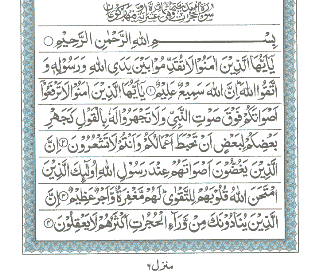 بِسْمِ اللهِ الرَّحْمٰنِ الرَّحِيْمِ
يٰٓاَيُّهَا الَّذِيْنَ اٰمَنُوْا لَا تُقَدِّمُوْا بَيْنَ يَدَيِ اللهِ وَرَسُوْلِهٖ وَ
اتَّقُوا اللهَ ؕ اِنَّ اللهَ سَمِيْعٌ عَلِيْمٌ ۝۱ يٰٓاَيُّهَا الَّذِيْنَ اٰمَنُوْا لَا تَرْفَعُوْٓا
اَصْوَاتَكُمْ فَوْقَ صَوْتِ النَّبِيِّ وَلَا تَجْهَرُوْا لَهٗ بِالْقَوْلِ كَجَهْرِ
بَعْضِكُمْ لِبَعْضٍ اَنْ تَحْبَطَ اَعْمَالُكُمْ وَاَنْتُمْ لَا تَشْعُرُوْنَ ۝۲ اِنَّ
الَّذِيْنَ يَغُضُّوْنَ اَصْوَاتَهُمْ عِنْدَ رَسُوْلِ اللهِ اُولٰٓئِكَ الَّذِيْنَ
امْتَحَنَ اللهُ قُلُوْبَهُمْ لِلتَّقْوٰى ؕ لَهُمْ مَّغْفِرَةٌ وَّاَجْرٌ عَظِيْمٌ ۝۳ اِنَّ
الَّذِيْنَ يُنَادُوْنَكَ مِنْ وَّرَآءِ الْحُجُرٰتِ اَكْثَرُهُمْ لَا يَعْقِلُوْنَ ۝۴
منزل ۶